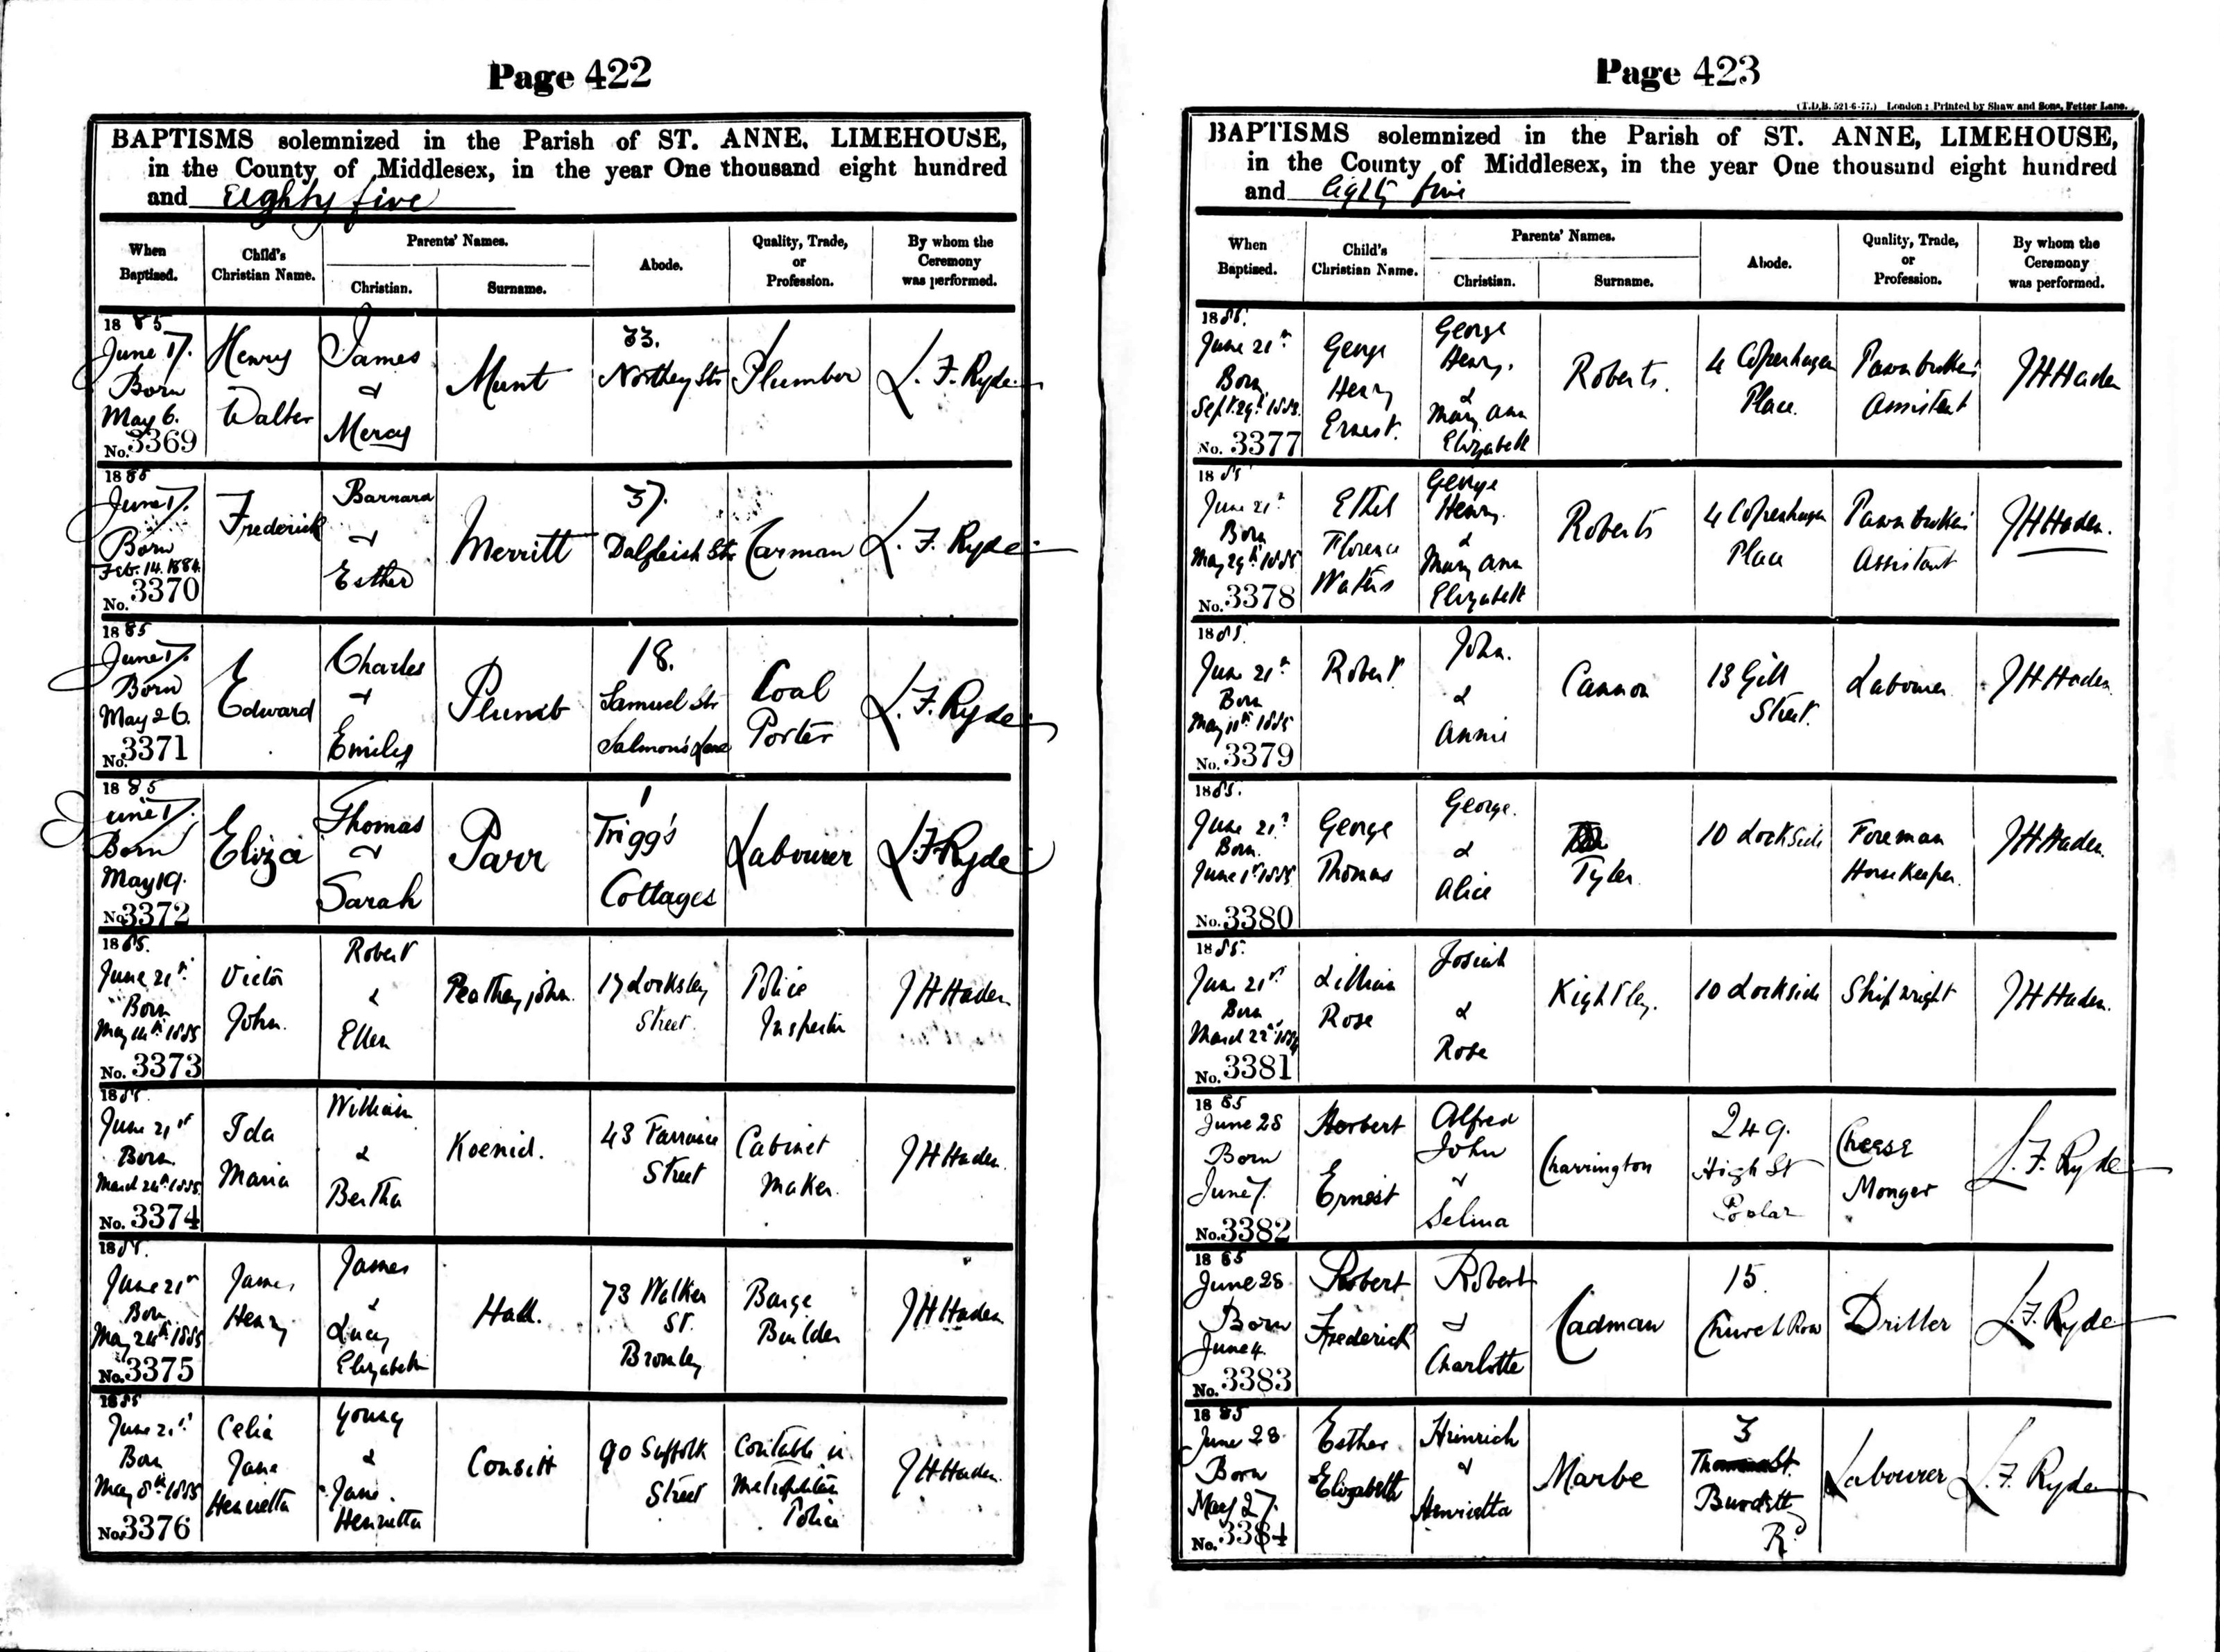 Page 422
BAPTISMS solemnized in the Parish of ST. ANNE, LIMEHOUSE,
in the County of Middlesex, in the year One thousand eight hundred
and Eighty five
When Baptized. Child's Christian Name. Parents' Names. Christian. Surname. Abode. Quality, Trade, or Profession. By whom the Ceremony was performed.
1885 June 17. Born May 6. No. 3369 Henry Walter James & Mercy Munt 33. Northey Str Plumber L. F. Ryde
1885 June 17. Born Feb. 14. 1884. No. 3370 Frederick Barnard & Esther Merritt 37. Dalgleish Str Carman L. F. Ryde
1885 June 17. Born May 26. No. 3371 Edward Charles & Emily Plumb 18. Samuel Str Salmon's Lane Coal Porter L. F. Ryde
1885 June 17. Born May 19. No. 3372 Eliza Thomas & Sarah Parr 1 Trigg's Cottages Labourer L. F. Ryde
1885. June 21st Born May 14th 1885 No. 3373 Victor John. Robert & Ellen Peatheyjohn. 17 Locksley Street. Police Inspector J H Haden
1885. June 21st Born. March 24th 1885. No. 3374 Ida Maria William & Bertha Koenid. 43 Farrance Street Cabinet Maker. J H Haden.
1885. June 21st Born May 24th 1885 No. 3375 James Henry James & Lucy Elizabeth Hall. 73 Walker St. Bromley Barge Builder J H Haden
1885 June 21st Born May 8th 1885 No. 3376 Celia Jane Henrietta Young & Jane Henrietta Consitt 90 Suffolk Street Constable in Metropolitan Police J H Haden.
Page 423
(T.D.B. 521-6-77.) London: Printed by Shaw and Sons, Fetter Lane.
BAPTISMS solemnized in the Parish of ST. ANNE, LIMEHOUSE,
in the County of Middlesex, in the year One thousand eight hundred
and Eighty five
When Baptized. Child's Christian Name. Parents' Names. Christian. Surname. Abode. Quality, Trade, or Profession. By whom the Ceremony was performed.
1885. June 21st Born Sept. 29th 1883. No. 3377 George Henry Ernest. George Henry. & Mary Ann Elizabeth Roberts. 4 Copenhagen Place. Pawnbroker's Assistant J H Haden
1885 June 21st Born May 29th 1885 No. 3378 Ethel Florence Waters George Henry. & Mary Ann Elizabeth Roberts 4 Copenhagen Place Pawnbroker's Assistant J H Haden.
1885. June 21st Born May 11th 1885 No. 3379 Robert John. & Annie Cannon 13 Gill Street. Labourer J H Haden.
1885. June 21st Born. June 1st 1885 No. 3380 George Thomas George. & Alice Tyler. 10 Lockside Foreman Horse Keeper. J H Haden.
1885. June 21st Born March 22nd 1884 No. 3381 Lillian Rose Josiah & Rose Kightley. 10 Lockside Shipwright J H Haden.
1885 June 28 Born June 7. No. 3382 Herbert Ernest Alfred John & Selina Charrington 249. High St Poplar Cheese Monger L. F. Ryde
1885 June 28 Born June 4. No. 3383 Robert Frederick Robert & Charlotte Cadman 15 Church Row Driller L. F. Ryde
1885 June 28 Born May 27. No. 3384 Esther Elizabeth Heinrich & Henrietta Marbe 3 Burdett Rd Labourer L. F. Ryde